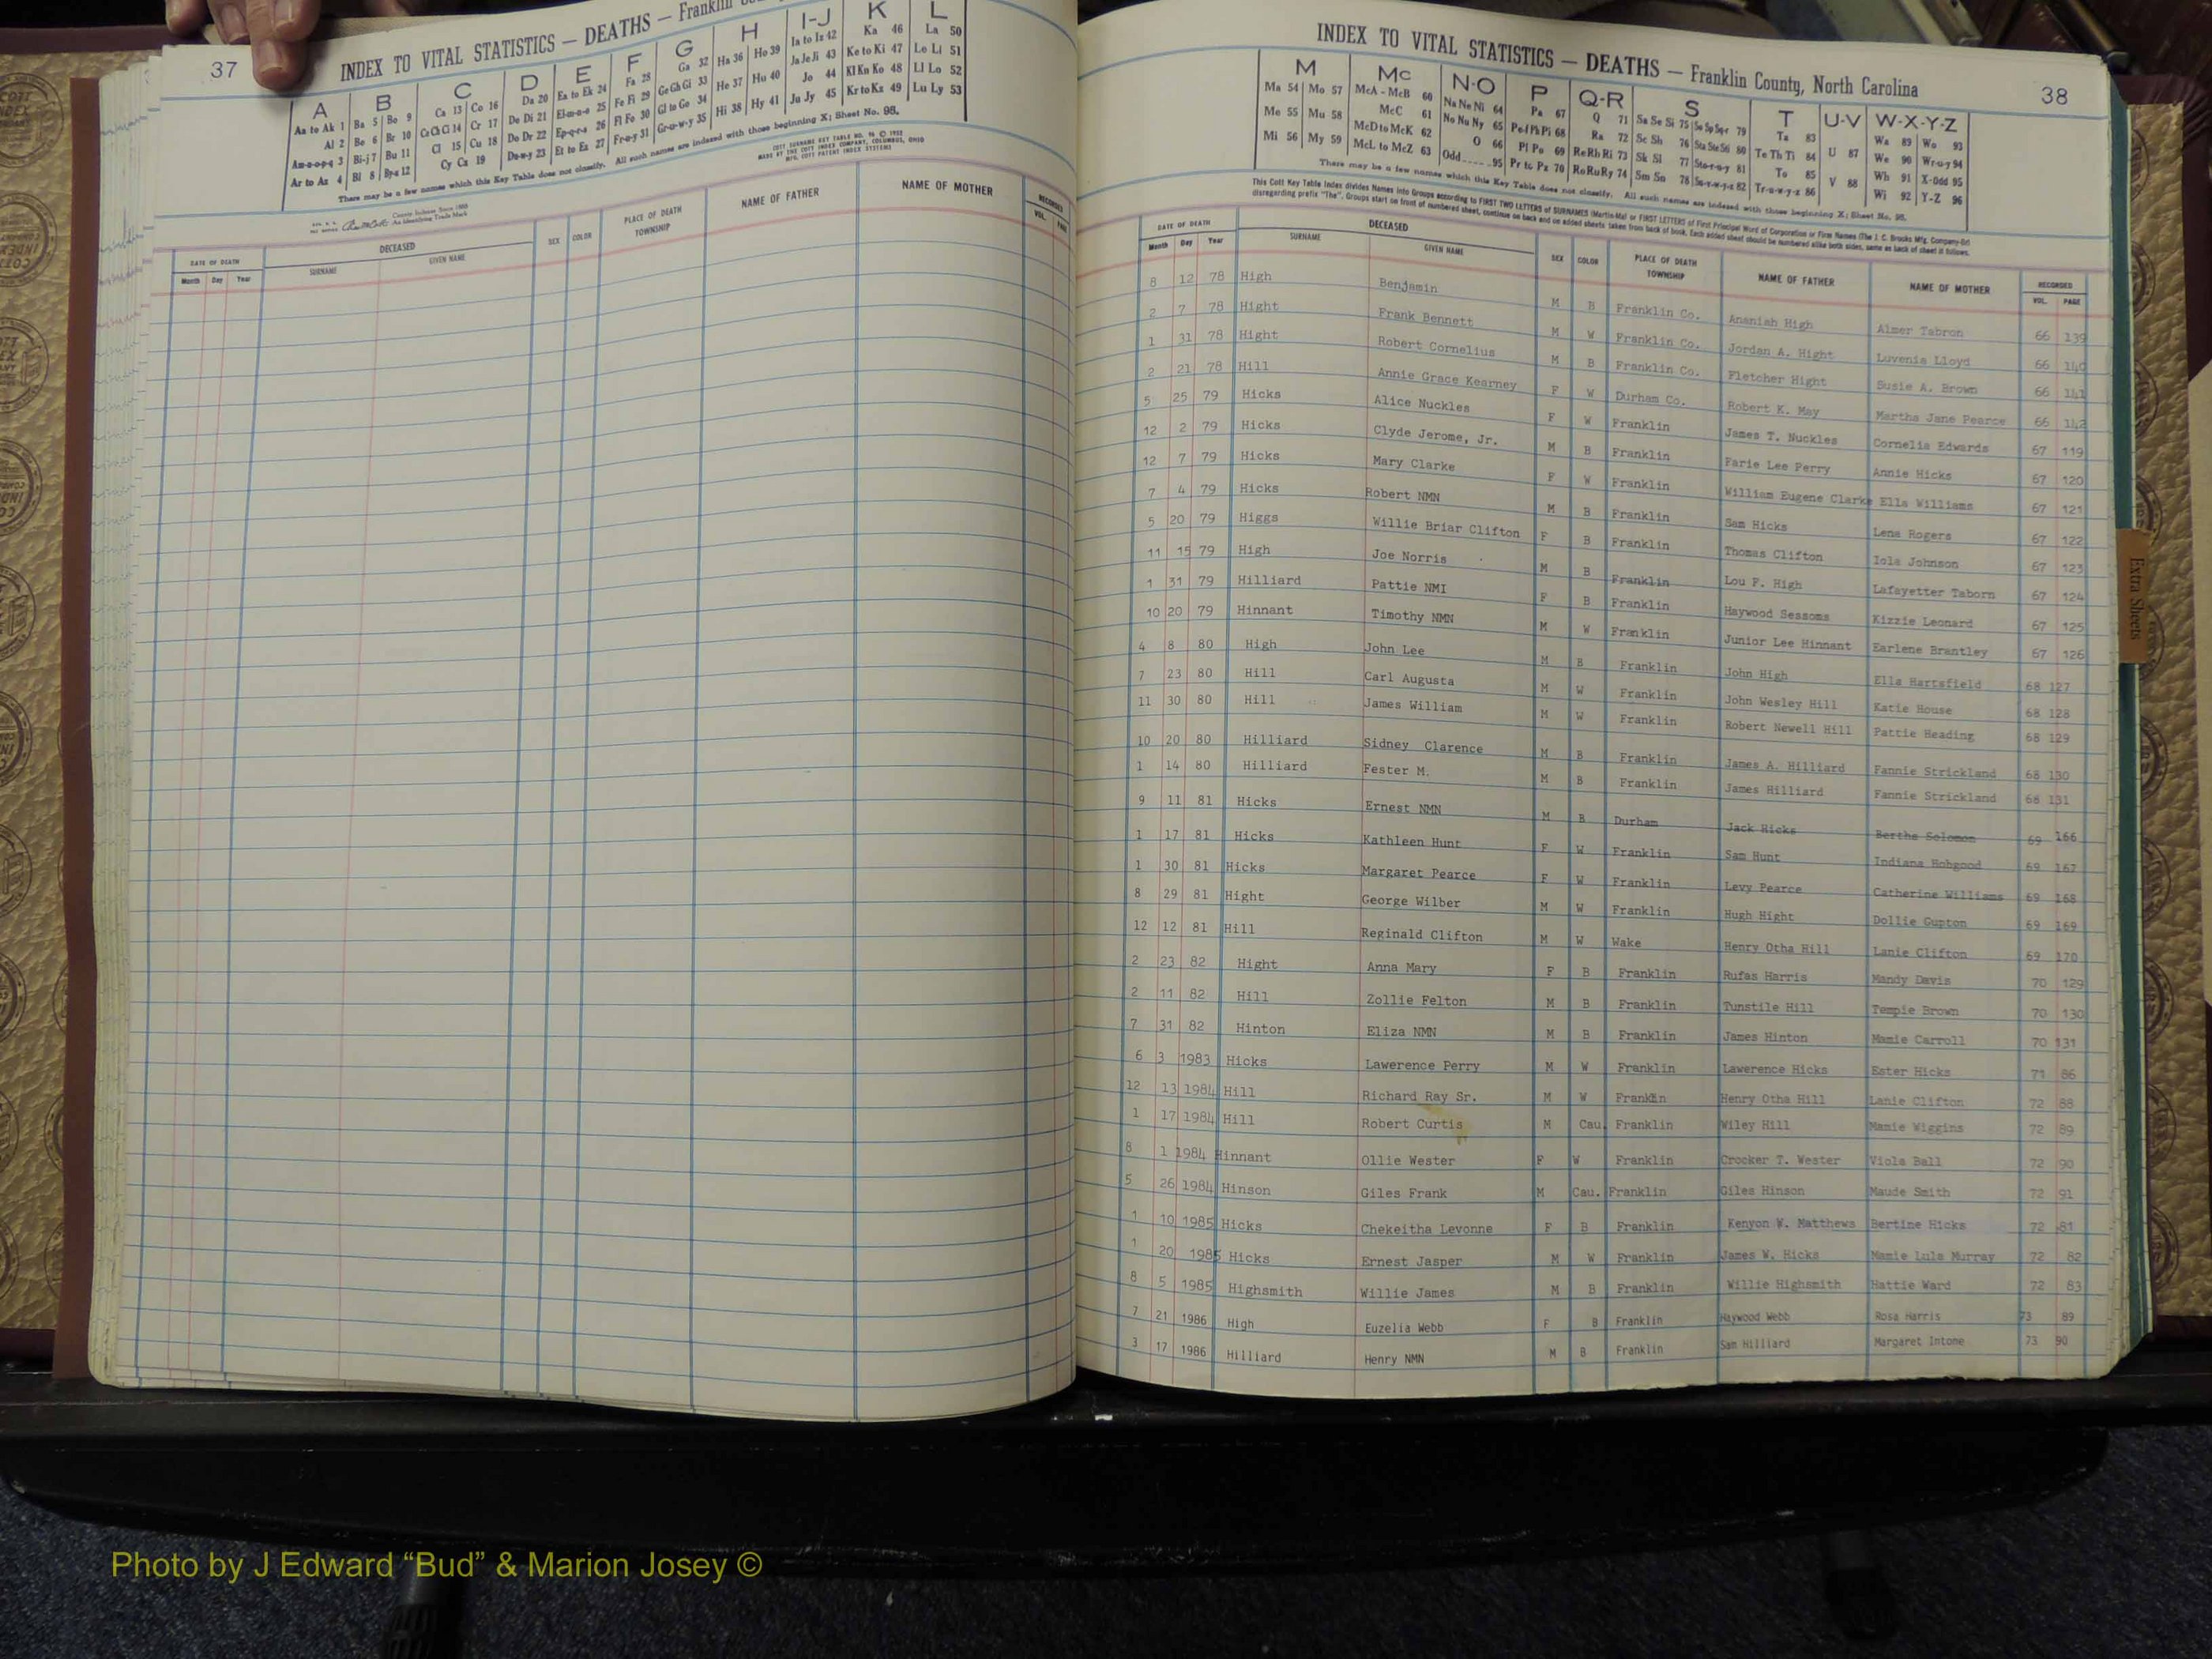 37
INDEX TO VITAL STATISTICS — DEATHS — Franklin
A B C D E F G H I-J K L
Aa to Ak 1 Ba 5 Bo 9 Ca 13 Co 16 Da 20 Ea to Ek 24 Fa 28 Ga 32 Ha 36 Ho 39 Ia to Iz 42 Ka 46 La 50
Al 2 Be 6 Br 10 Ce Ch Ci 14 Cr 17 De Di 21 El-m-n-o 25 Fe Fi 29 Ge Gh Gi 33 He 37 Hu 40 Ja Je Ji 43 Ke to Ki 47 Le Li 51
Am-n-o-p-q 3 Bi-j 7 Bu 11 Cl 15 Cu 18 Do Dr 22 Ep-q-r-s 26 Fl Fo 30 Gl to Go 34 Hi 38 Hy 41 Jo 44 Kl Kn Ko 48 Ll Lo 52
Ar to Az 4 Bl 8 By-z 12 Cy Cz 19 Du-w-y 23 Et to Ez 27 Fr-u-y 31 Gr-u-w-y 35 Ju Jy 45 Kr to Kz 49 Lu Ly 53
There may be a few names which this Key Table does not classify. All such names are indexed with those beginning X; Sheet No. 95.
DATE OF DEATH DECEASED SEX COLOR PLACE OF DEATH TOWNSHIP NAME OF FATHER NAME OF MOTHER RECORDED
Month Day Year SURNAME GIVEN NAME VOL. PAGE
INDEX TO VITAL STATISTICS — DEATHS — Franklin County, North Carolina
38
M Mc N-O P Q-R S T U-V W-X-Y-Z
Ma 54 Mo 57 McA - McB 60 Na Ne Ni 64 Pa 67 Q 71 Sa Se Si 75 So Sp Sq-r 79 Ta 83 U 87 Wa 89 Wo 93
Me 55 Mu 58 McC 61 No Nu Ny 65 Pe-f Ph Pi 68 Ra 72 Sc Sh 76 Sta Ste Sti 80 Te Th Ti 84 V 88 We 90 Wr-u-y 94
Mi 56 My 59 McD to McK 62 O 66 Pl Po 69 Re Rh Ri 73 Sk Sl 77 Sto-r-u-y 81 To 85 Wh 91 X-Odd 95
McL to McZ 63 Odd 95 Pr to Pz 70 Ro Ru Ry 74 Sm Sn 78 Su-v-w-y-z 82 Tr-u-w-y-z 86 Wi 92 Y-Z 96
There may be a few names which this Key Table does not classify. All such names are indexed with those beginning X; Sheet No. 95.
This Cott Key Table Index divides Names into Groups according to FIRST TWO LETTERS of SURNAMES (Martin-Ma) or FIRST LETTERS of First Principal Word of Corporation or Firm Names (The J. C. Brooks Mfg. Company-Br)
disregarding prefix "The". Groups start on front of numbered sheet, continue on back end on added sheets taken from back of book. Each added sheet should be numbered alike both sides, same as back of sheet it follows.
DATE OF DEATH DECEASED SEX COLOR PLACE OF DEATH TOWNSHIP NAME OF FATHER NAME OF MOTHER RECORDED
Month Day Year SURNAME GIVEN NAME VOL. PAGE
8 12 78 High Benjamin M B Franklin Co. Ananiah High Almer Tabron 66 139
2 7 78 Hight Frank Bennett M W Franklin Co. Jordan A. Hight Luvenia Lloyd 66 140
1 31 78 Hight Robert Cornelius M B Franklin Co. Fletcher Hight Susie A. Brown 66 141
2 21 78 Hill Annie Grace Kearney F W Durham Co. Robert K. May Martha Jane Pearce 66 142
5 25 79 Hicks Alice Nuckles F W Franklin James T. Nuckles Cornelia Edwards 67 119
12 2 79 Hicks Clyde Jerome, Jr. M B Franklin Farie Lee Perry Annie Hicks 67 120
12 7 79 Hicks Mary Clarke F W Franklin William Eugene Clarke Ella Williams 67 121
7 4 79 Hicks Robert NMN M B Franklin Sam Hicks Lena Rogers 67 122
5 20 79 Higgs Willie Briar Clifton F B Franklin Thomas Clifton Iola Johnson 67 123
11 15 79 High Joe Norris M B Franklin Lou F. High Lafayetter Taborn 67 124
1 31 79 Hilliard Pattie NMI F B Franklin Haywood Sessoms Kizzie Leonard 67 125
10 20 79 Hinnant Timothy NMN M W Franklin Junior Lee Hinnant Earlene Brantley 67 126
4 8 80 High John Lee M B Franklin John High Ella Hartsfield 68 127
7 23 80 Hill Carl Augusta M W Franklin John Wesley Hill Katie House 68 128
11 30 80 Hill James William M W Franklin Robert Newell Hill Pattie Heading 68 129
10 20 80 Hilliard Sidney Clarence M B Franklin James A. Hilliard Fannie Strickland 68 130
1 14 80 Hilliard Fester M. M B Franklin James Hilliard Fannie Strickland 68 131
9 11 81 Hicks Ernest NMN M B Durham Jack Hicks Bertha Solomon 69 166
1 17 81 Hicks Kathleen Hunt F W Franklin Sam Hunt Indiana Hobgood 69 167
1 30 81 Hicks Margaret Pearce F W Franklin Levy Pearce Catherine Williams 69 168
8 29 81 Hight George Wilber M W Franklin Hugh Hight Dollie Gupton 69 169
12 12 81 Hill Reginald Clifton M W Wake Henry Otha Hill Lanie Clifton 69 170
2 23 82 Hight Anna Mary F B Franklin Rufas Harris Mandy Davis 70 129
2 11 82 Hill Zollie Felton M B Franklin Tunstile Hill Tempie Brown 70 130
7 31 82 Hinton Eliza NMN M B Franklin James Hinton Mamie Carroll 70 131
6 3 1983 Hicks Lawerence Perry M W Franklin Lawerence Hicks Ester Hicks 71 86
12 13 1984 Hill Richard Ray Sr. M W Franklin Henry Otha Hill Lanie Clifton 72 88
1 17 1984 Hill Robert Curtis M Cau. Franklin Wiley Hill Mamie Wiggins 72 89
8 1 1984 Hinnant Ollie Wester F W Franklin Crocker T. Wester Viola Ball 72 90
5 26 1984 Hinson Giles Frank M Cau. Franklin Giles Hinson Maude Smith 72 91
1 10 1985 Hicks Chekeitha Levonne F B Franklin Kenyon W. Matthews Bertine Hicks 72 81
1 20 1985 Hicks Ernest Jasper M W Franklin James W. Hicks Mamie Lula Murray 72 82
8 5 1985 Highsmith Willie James M B Franklin Willie Highsmith Hattie Ward 72 83
7 21 1986 High Euzelia Webb F B Franklin Haywood Webb Rosa Harris 73 89
3 17 1986 Hilliard Henry NMN M B Franklin Sam Hilliard Margaret Intone 73 90
Extra Sheets
Photo by J Edward “Bud” & Marion Josey ©